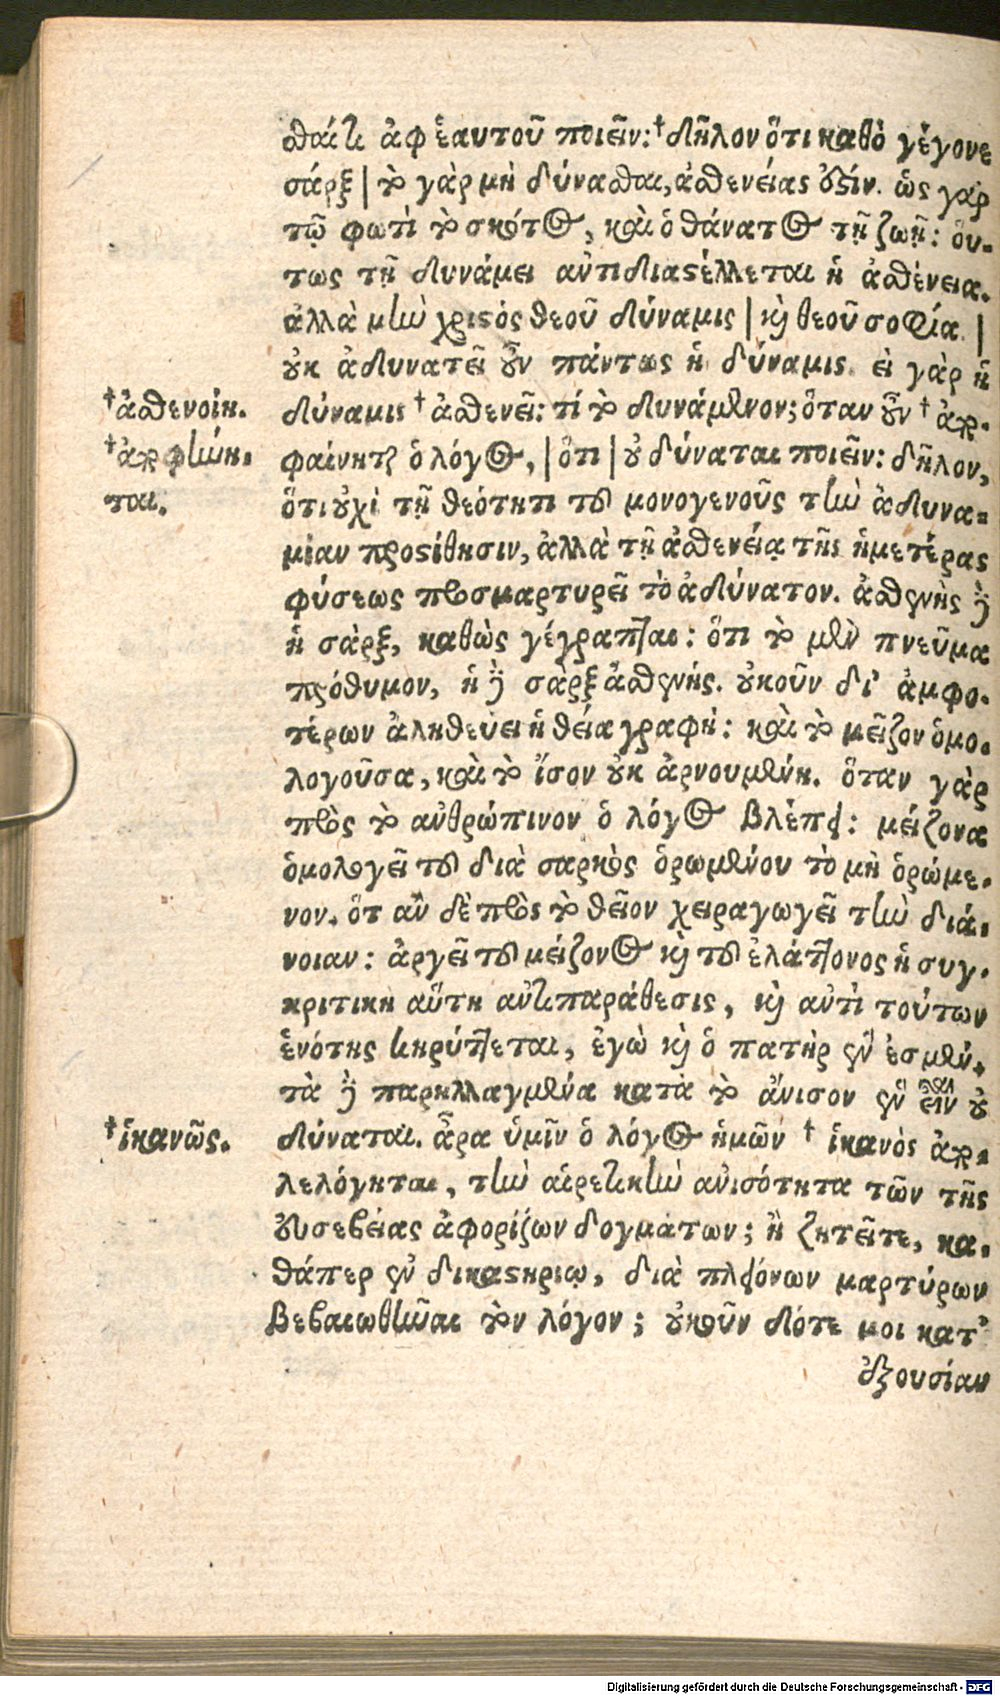 σθαί τι ἀφ ἑαυτοῦ ποιεῖν: † δῆλον ὅτι καθὸ γέγονε
σάρξ | τὸ γὰρ μὴ δύνασθαι, ἀσθενείας ὅξίν. ὡς γὰρ
τῷ φωτὶ τὸ σκότος, καὶ ὁ θάνατος τῇ ζωῇ: οὕ-
τως τῇ δυνάμει ἀντιδιαστέλλεται ἡ ἀσθένεια.
ἀλλὰ μὴν χριστός θεοῦ δύναμις | καὶ θεοῦ σοφία |
οὐκ ἀδυνατεῖ οὖν πάντως ἡ δύναμις. εἰ γὰρ ἡ
† ἀσθενοίη. δύναμις † ἀσθενεῖ: τί τὸ δυνάμενον; ὅταν οὖν † ἀπο-
† ἀποφήνη- φαίνηται ὁ λόγος, | ὅτι | οὐ δύναται ποιεῖν: δῆλον,
ται. ὅτι οὐχὶ τῇ θεότητι τοῦ μονογενοῦς τὴν ἀδυνα-
μίαν προστίθησιν, ἀλλὰ τῇ ἀσθενείᾳ τῆς ἡμετέρας
φύσεως προσμαρτυρεῖ τὸ ἀδύνατον. ἀσθενὴς δὲ
ἡ σὰρξ, καθὼς γέγραπται: ὅτι τὸ μὲν πνεῦμα
πρόθυμον, ἡ δὲ σὰρξ ἀσθενής. οὐκοῦν δι' ἀμφο-
τέρων ἀληθεύει ἡ θεία γραφή: καὶ τὸ μεῖζον ὁμο-
λογοῦσα, καὶ τὸ ἴσον οὐκ ἀρνουμένη. ὅταν γὰρ
πρὸς τὸ ἀνθρώπινον ὁ λόγος βλέπῃ: μείζονα
ὁμολογεῖ τοῦ διὰ σαρκὸς ὁρωμένου τὸ μὴ ὁρώμε-
νον. ὅτ αν δὲ πρὸς τὸ θεῖον χειραγωγεῖ τὴν διά-
νοιαν: ἀργεῖ τοῦ μείζονος καὶ τοῦ ἐλάττονος ἡ συγ-
κριτικη αὕτη ἀντιπαράθεσις, καὶ ἀντὶ τούτων
ἑνότης κηρύττεται, ἐγὼ καὶ ὁ πατὴρ ἓν ἐσμέν.
τὰ δὲ παρηλλαγμένα κατὰ τὸ ἄνισον ἓν εἶναι οὐ
† ἱκανῶς. δύναται. ἆρα ὑμῖν ὁ λόγος ἡμῶν † ἱκανὸς ἀπο-
λελόγηται, τὴν αἱρετικὴν ἀνισότητα τῶν τῆς
εὐσεβείας ἀφορίζων δογμάτων; ἢ ζητεῖτε, κα-
θάπερ ἐν δικαστηρίῳ, διὰ πλειόνων μαρτύρων
βεβαιωθῆναι τὸν λόγον; οὐκοῦν δότε μοι κατ'
ἐξουσίαν
Digitalisierung gefördert durch die Deutsche Forschungsgemeinschaft - DFG